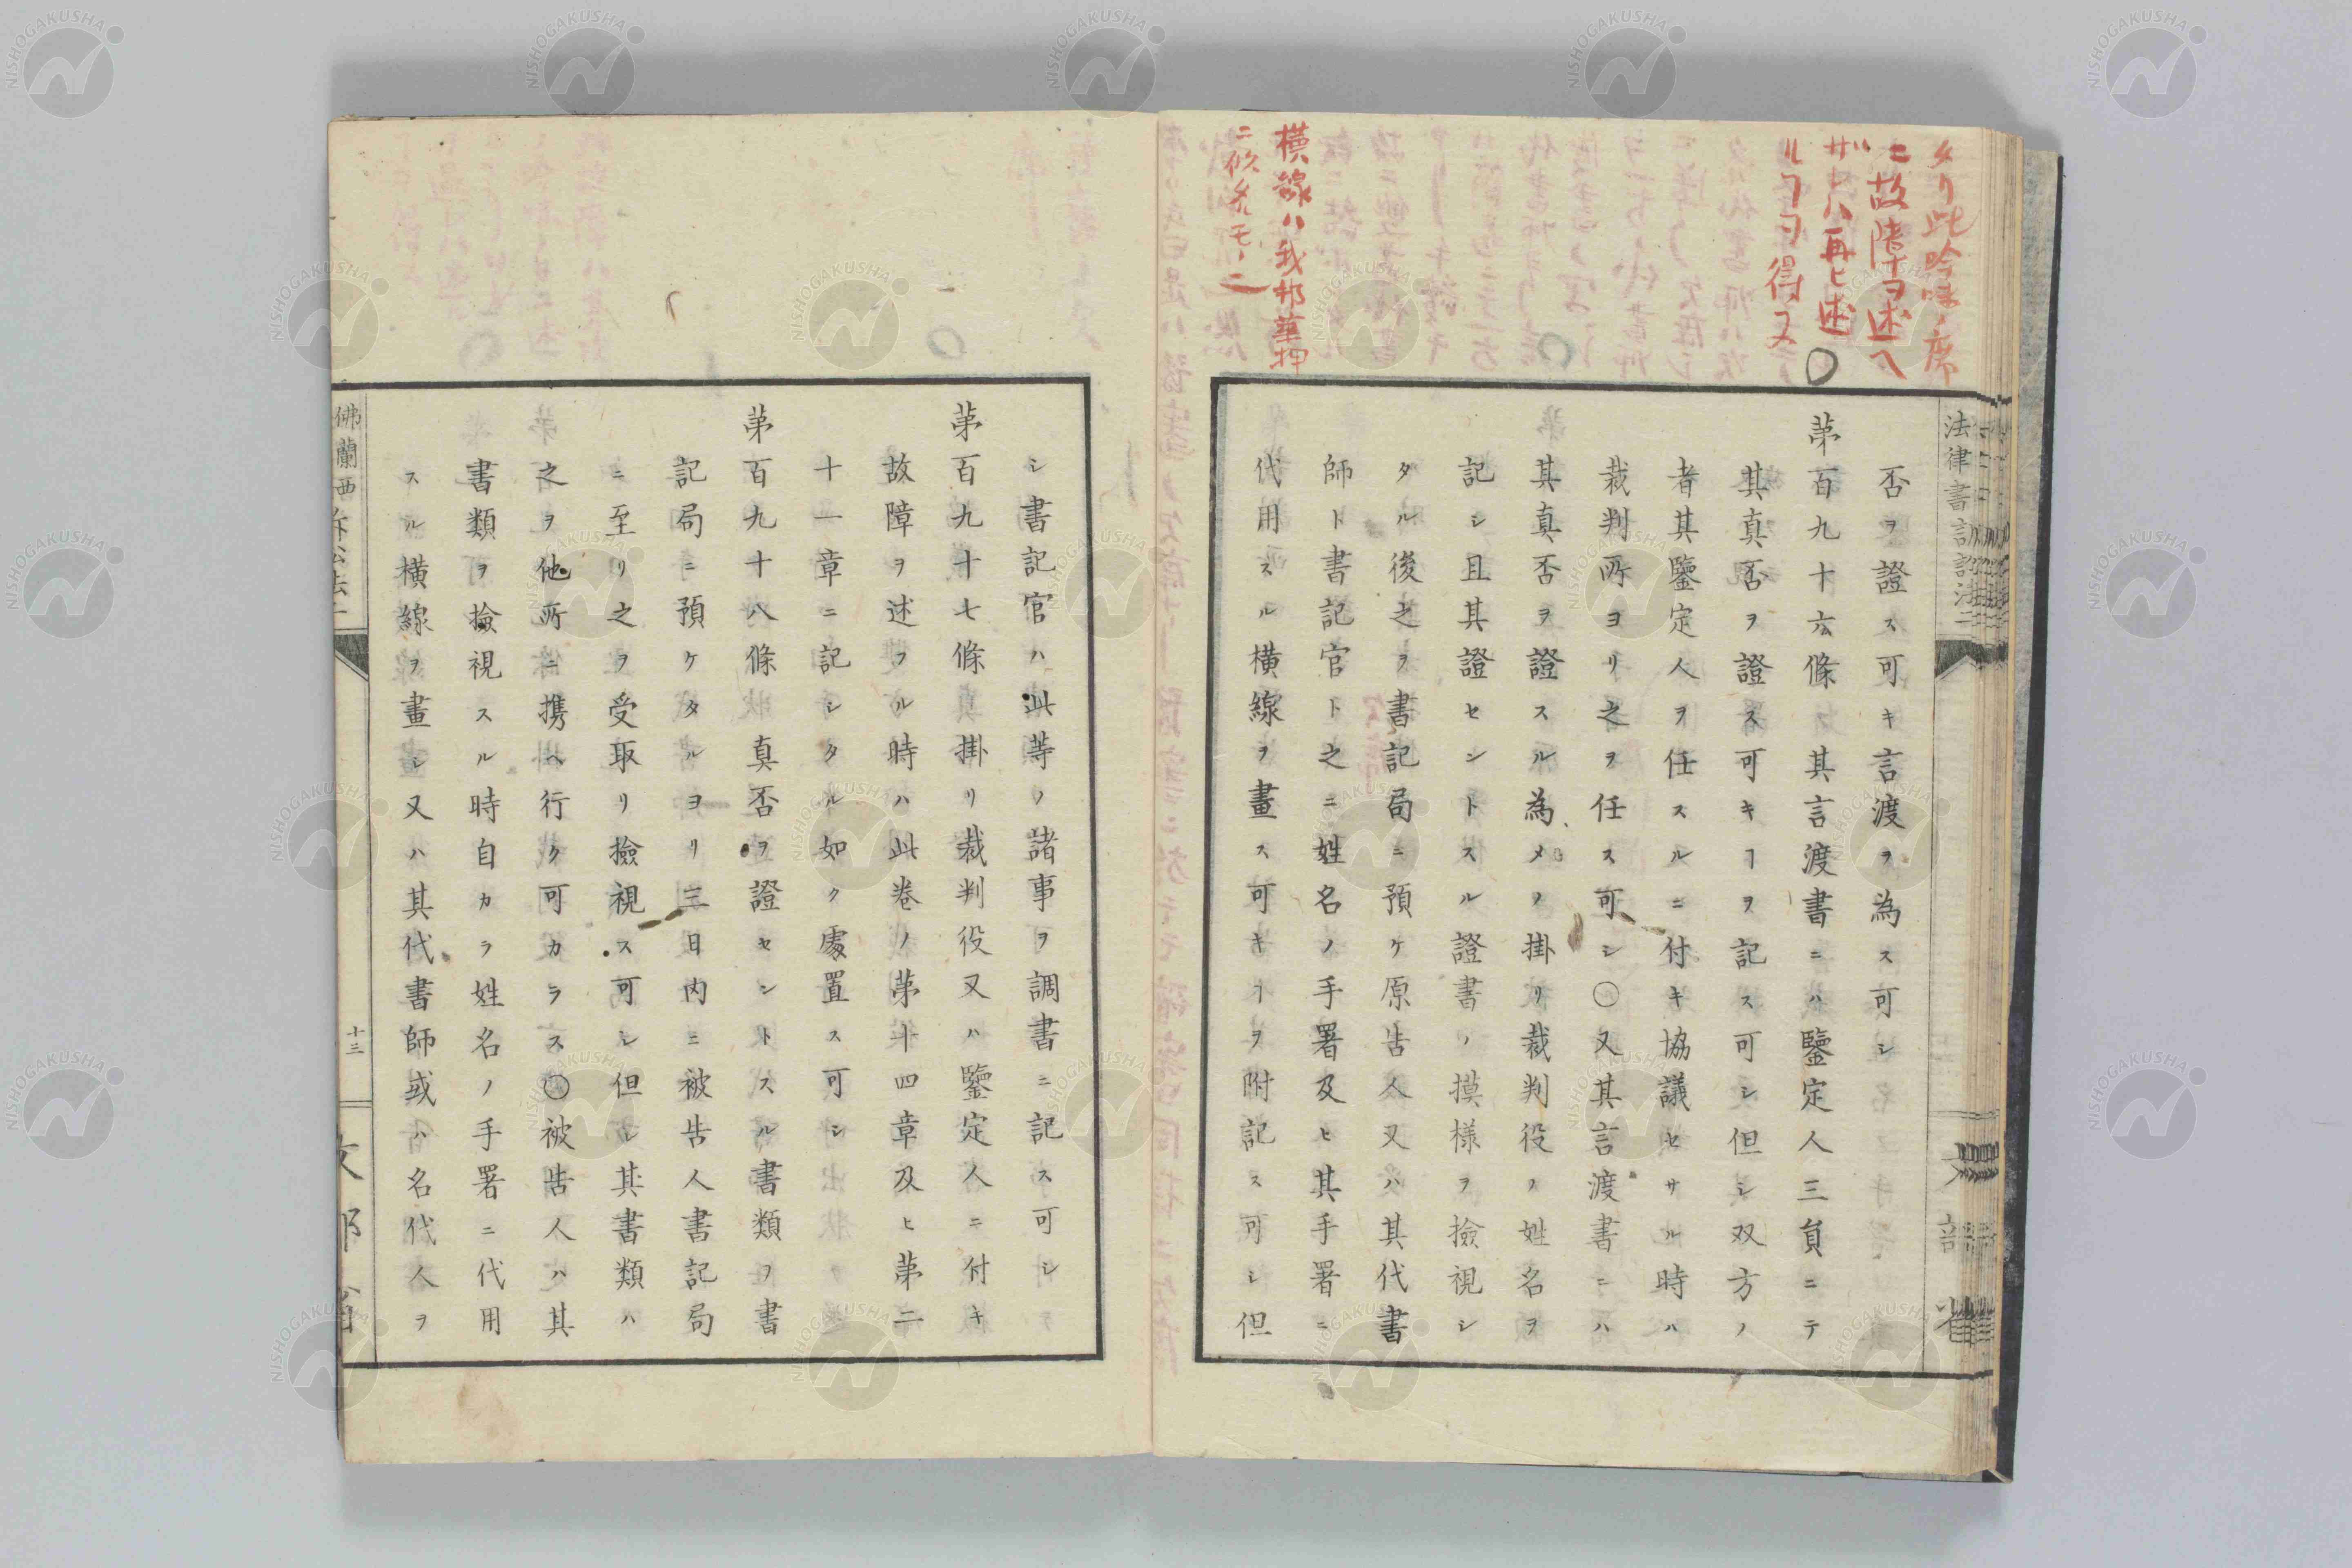 タリ此吟味ノ席
ニ故障ヲ述ヘ
ザレハ再ヒ述
ルヿヲ得ス
横線ハ我邦華押
ニ似
否ヲ證ス可キ言渡ヲ為ス可シ
第百九十六條其言渡書ニハ鑒定人三員ニテ
其真否ヲ證ス可キヿヲ記ス可シ但シ双方ノ
者其鑒定人ヲ任スルニ付キ協議セサル時ハ
裁判所ヨリ之ヲ任ス可シ〇又其言渡書ニハ
其真否ヲ證スル為メノ掛リ裁判役ノ姓名ヲ
記シ且其證セントスル證書ノ摸様ヲ撿視シ
タル後之ヲ書記局ニ預ケ原告人又ハ其代書
師ト書記官ト之ニ姓名ノ手署及ヒ其手署ニ
代用スル横線ヲ畫ス可キヿヲ附記ス可シ但
シ書記官ハ此等ノ諸事ヲ調書ニ記ス可シ
第百九十七條掛リ裁判役又ハ鑒定人ニ付キ
故障ヲ述フル時ハ此巻ノ第十四章及ヒ第二
十一章ニ記シタル如ク處置ス可シ
第百九十八條真否ヲ證セントスル書類ヲ書
記局ニ預ケタルヨリ三日内ニ被告人書記局
ニ至リ之ヲ受取リ撿視ス可シ但シ其書類ハ
之ヲ他所ニ携ヘ行ク可カラス〇被告人ハ其
書類ヲ撿視スル時自カラ姓名ノ手署ニ代用
スル横線ヲ畫シ又ハ其代書師或ハ名代人ヲ
佛蘭西
十三
NISHOGAKUSHA